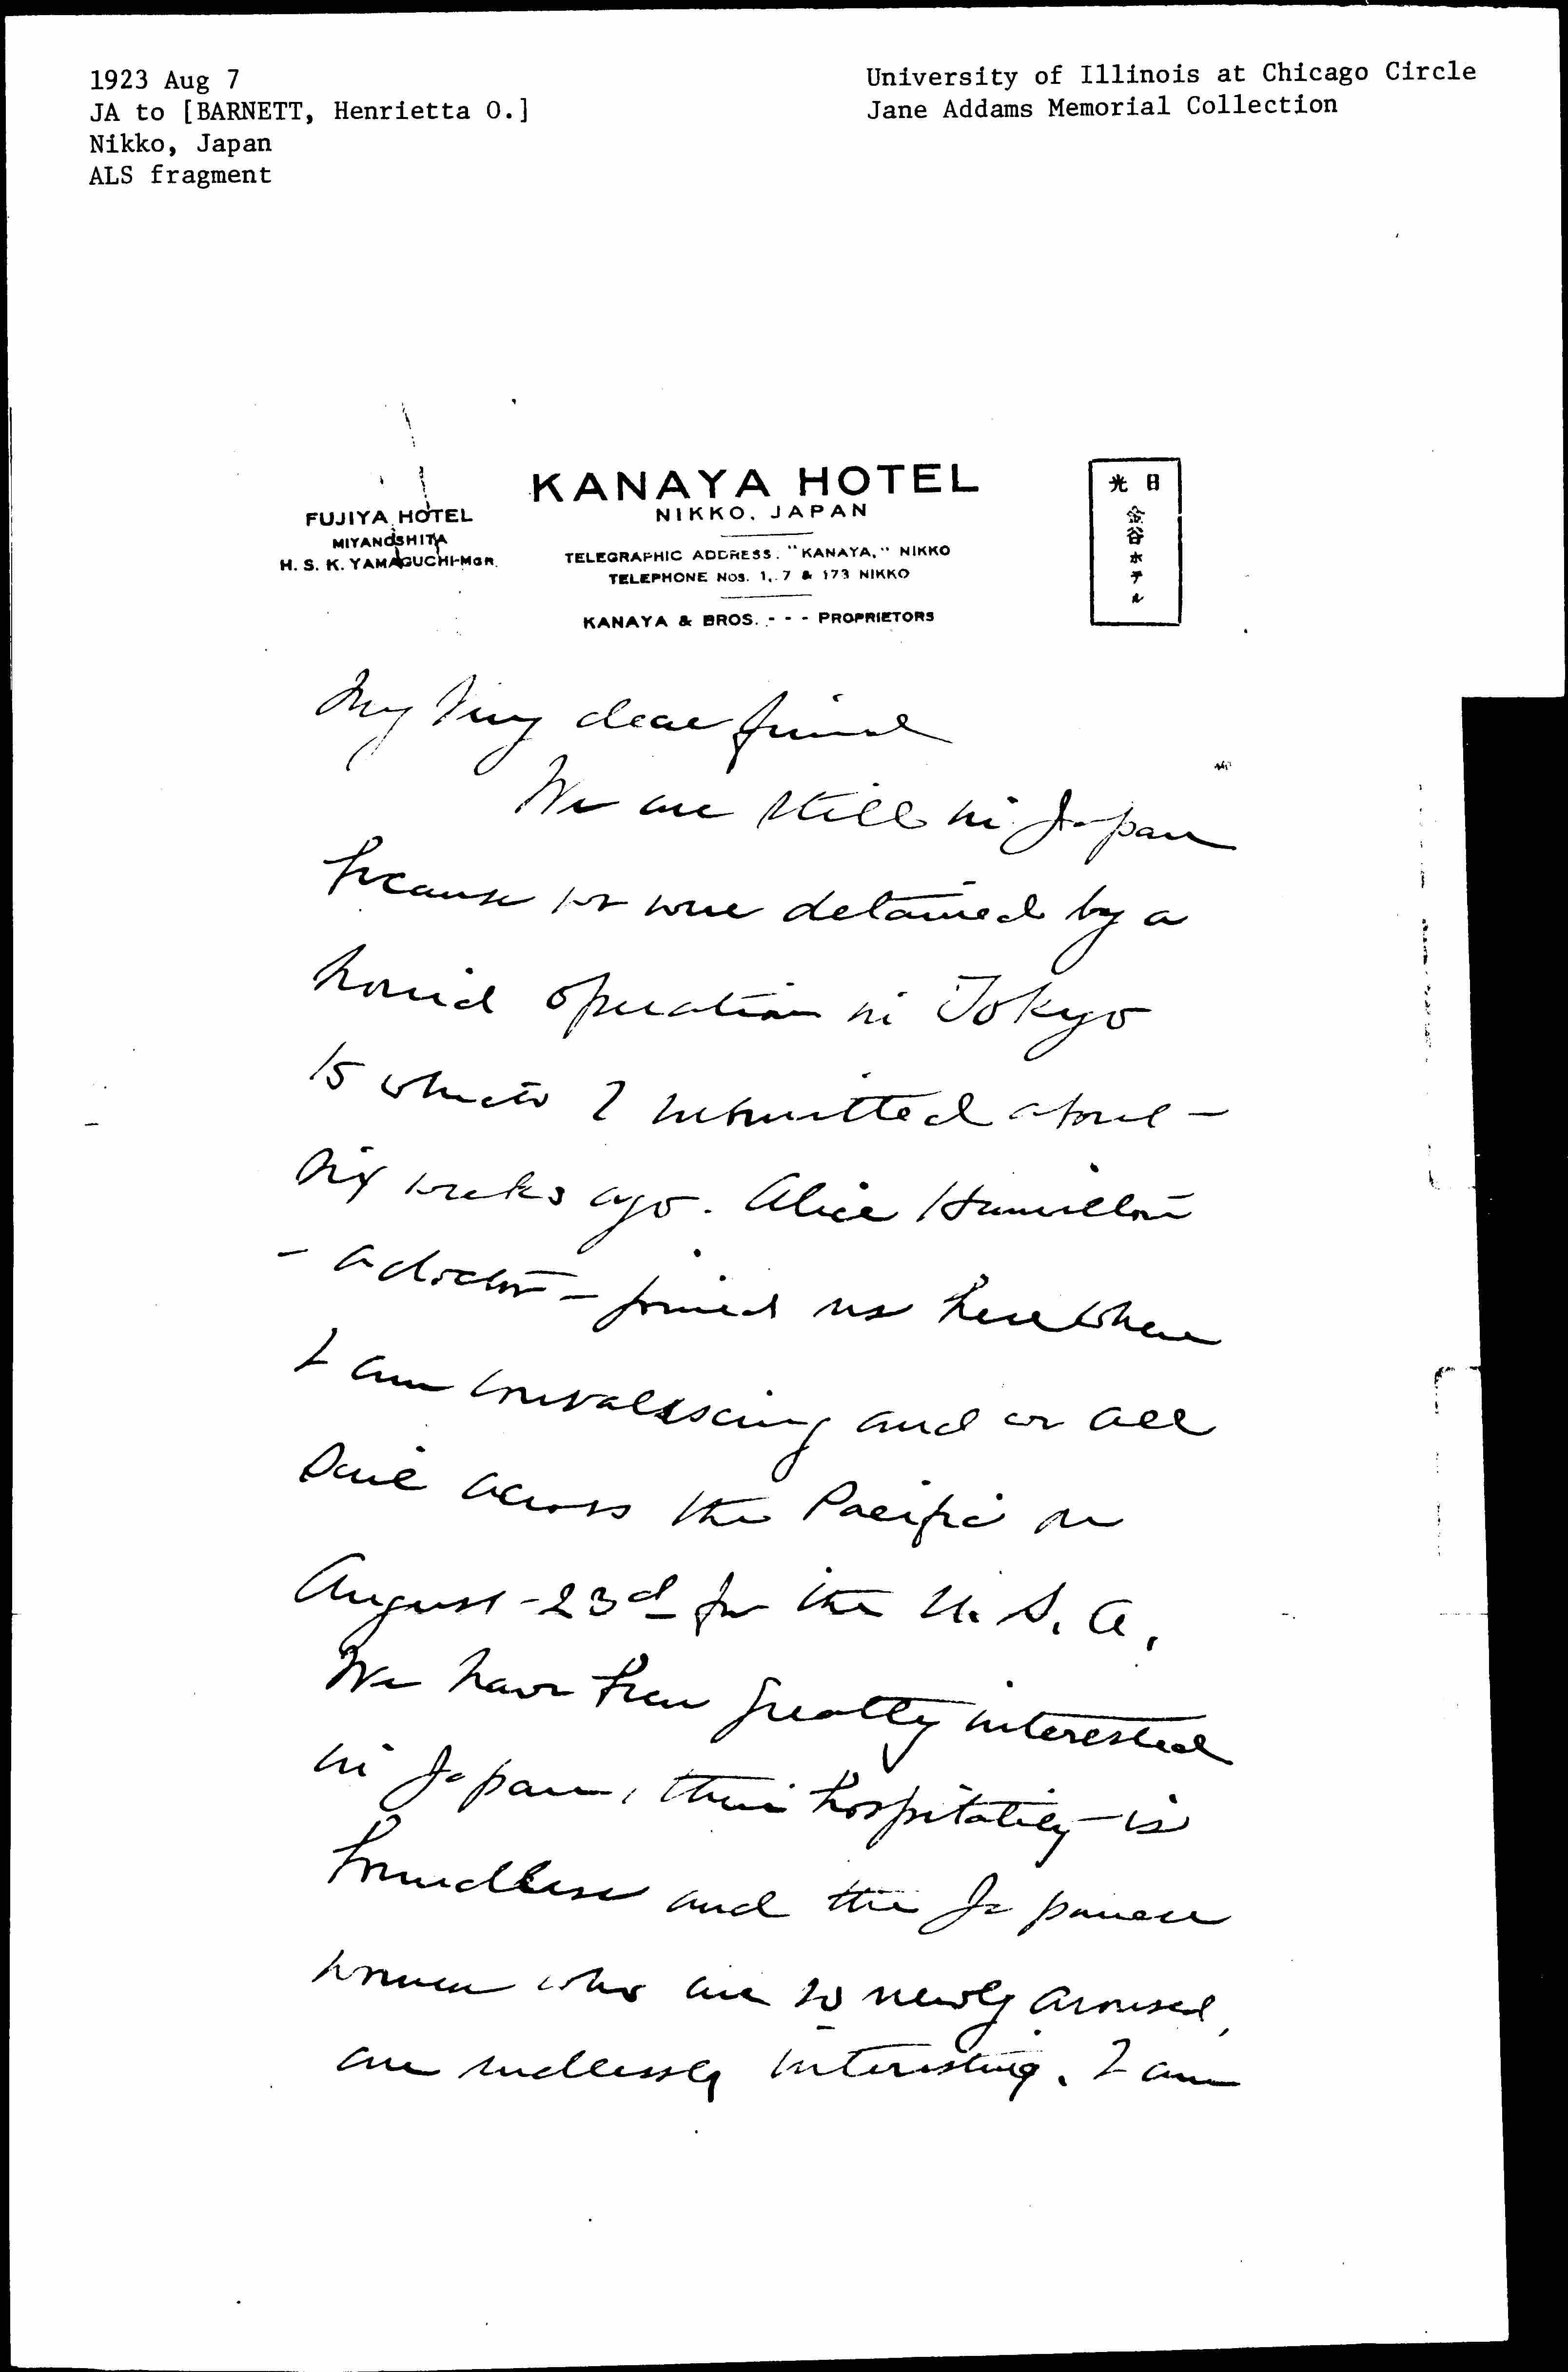 1923 Aug 7
JA to [BARNETT, Henrietta O.]
Nikko, Japan
ALS fragment
University of Illinois at Chicago Circle
Jane Addams Memorial Collection
FUJIYA HOTEL
MIYANOSHITA
H. S. K. YAMAGUCHI-MGR.
KANAYA HOTEL
NIKKO, JAPAN
TELEGRAPHIC ADDRESS. "KANAYA," NIKKO
TELEPHONE NOS. 1, 7 & 173 NIKKO
KANAYA & BROS. - - - PROPRIETORS
日光
金谷ホテル
My very dear friend
We are still in Japan
because we were detained by a
horrid operation in Tokyo
to which I submitted about
six weeks ago. Alice Hamilton
- a doctor - joined us here where
I am convalescing and we all
sail across the Pacific on
August 23d for the U. S. A.
We have been greatly interested
in Japan, their hospitality is
boundless and the Japanese
women who are so newly aroused,
are endlessly interesting. I am